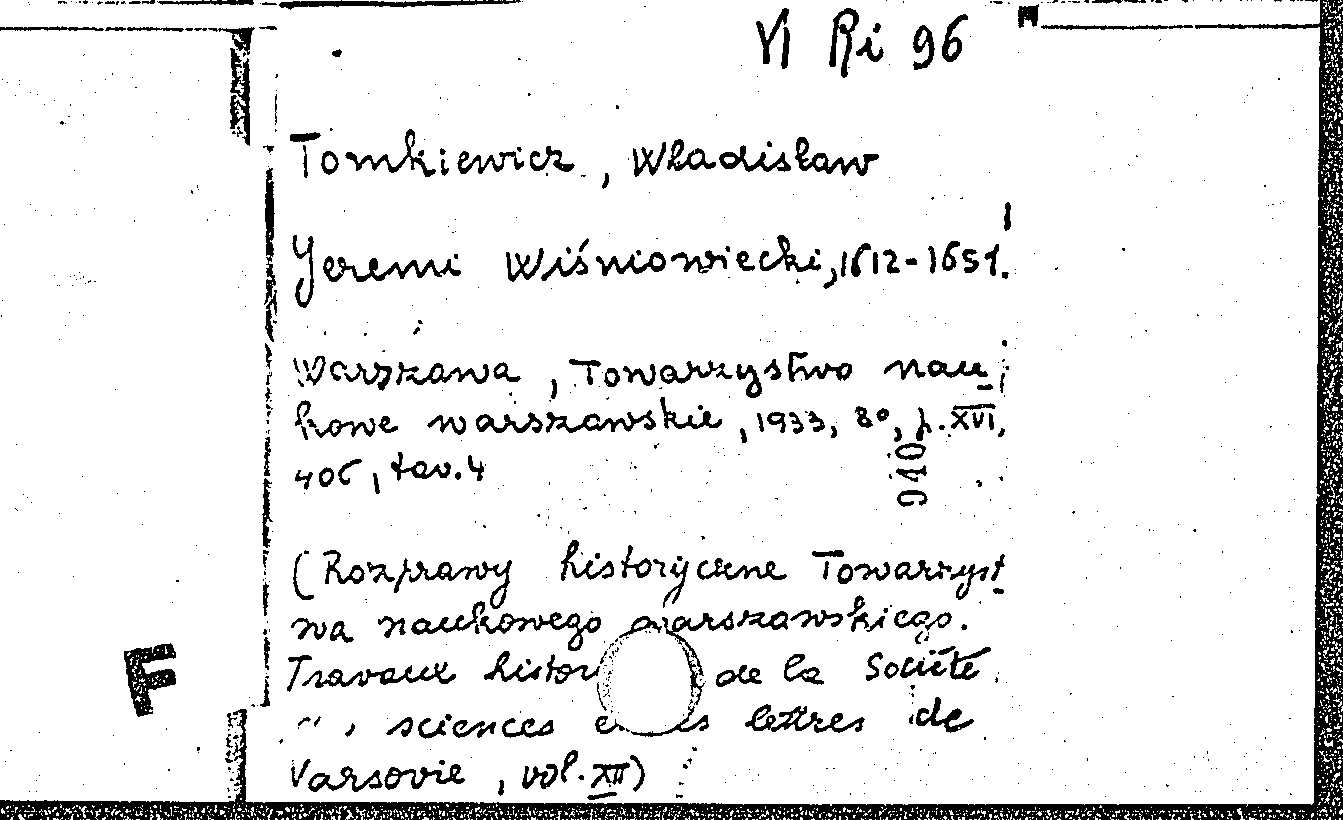 VI Ri 96
Tomkiewicz, Władisław
Jeremi Wiśniowiecki, 1612-1651.
Warszawa, Towarzystwo nau-
kowe warszawskie, 1933, 8°, p. XVI,
406, tav. 4
940
(Rozprawy historyczne Towarzyst-
wa naukowego warszawskiego.
Travaux histor de la Société
sciences lettres de
Varsovie, vol. XII)
F